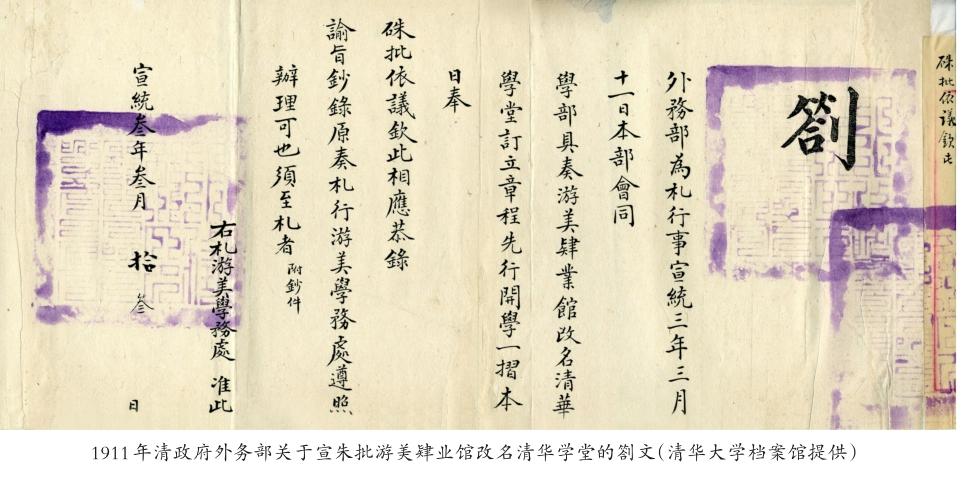 硃批依議欽此
劄
外務部為札行事宣統三年三月
十一日本部會同
學部具奏游美肄業館改名清華
學堂訂立章程先行開學一摺本
日奉
硃批依議欽此相應恭錄
諭旨鈔錄原奏札行游美學務處遵照
辦理可也須至札者 附鈔件
右札游美學務處 准此
宣統叁年叁月 拾叁 日
1911年清政府外务部关于宣朱批游美肄业馆改名清华学堂的劄文(清华大学档案馆提供)